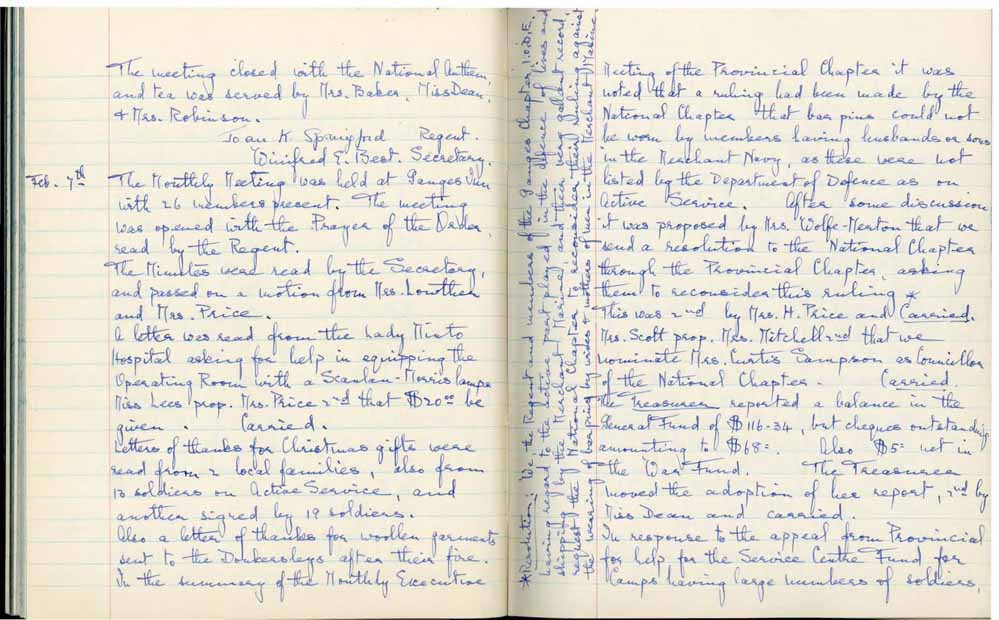 The meeting closed with the National Anthem,
and tea was served by Mrs. Baker, Miss Dean,
& Mrs. Robinson.
Joan K. Springford Regent.
Winifred E. Best. Secretary.
Feb. 7th
The Monthly Meeting was held at Ganges Inn
with 26 members present. The meeting
was opened with the Prayer of the Order,
read by the Regent.
The Minutes were read by the Secretary,
and passed on a motion from Mrs. Lowther
and Mrs. Price.
A letter was read from the Lady Minto
Hospital asking for help in equipping the
Operating Room with a Scanlan-Morris Lamp.
Miss Lees prop. Mrs. Price 2nd that $20.00 be
given. Carried.
Letters of thanks for Christmas gifts were
read from 2 local families, also from
13 soldiers on Active Service, and
another signed by 19 soldiers.
Also a letter of thanks for woollen garments
sent to the Donkersleys after their fire.
In the summary of the Monthly Executive
*Resolution: We the Regent and members of the Ganges Chapter I.O.D.E.
having regard to the active part played in the defence of lives and
shipping by the Merchant Marine, and their very gallant record,
request the National Chapter to reconsider their ruling against
the wearing of bar pins by wives & mothers of men in the Merchant Marine.
Meeting of the Provincial Chapter it was
noted that a ruling had been made by the
National Chapter that bar pins could not
be worn by members having husbands or sons
in the Merchant Navy, as these were not
listed by the Department of Defence as on
Active Service. After some discussion
it was proposed by Mrs. Wolfe-Merton that we
send a resolution to the National Chapter
through the Provincial Chapter, asking
them to reconsider this ruling *
This was 2nd by Mrs. H. Price and Carried.
Mrs. Scott prop. Mrs. Mitchell 2nd that we
nominate Mrs. Curtis Sampson as Councillor
of the National Chapter. Carried.
The Treasurer reported a balance in the
General Fund of $116-34, but cheques outstanding
amounting to $68=. Also $5= net in
the War Fund. The Treasurer
moved the adoption of her report, 2nd by
Miss Dean and carried.
In response to the appeal from Provincial
for help for the Service Centre Fund for
Camps having large numbers of soldiers,